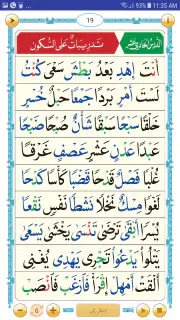 93% 11:35 AM
19
اَلدَّرْسُ الْحَادِيْ عَشَرَ تَدْرِيْبَاتٌ عَلَى السُّكُوْنِ
اَنْتَ اِهْدِ بَعْدُ بَطْشَ سَعْىَ كُنْتُ
لَسْتَ اَمْرٍ بَرْدًا جَمْعًا حَبْلٌ خُسْرٍ
خَلْقًا سَبْحًا سَبْقًا شَأْنٌ صُبْحًا ضَبْحًا
عَبْدًا عَدْنٍ عَشْرٍ عَصْفٍ غَرْقًا
غُلْبًا فَصْلٌ قَدْحًا قَضْبًا كَأْسًا كَدْحًا
لَغْوًا مِسْكٌ نَخْلًا نَشْطًا نَفْسٍ نَقْعًا
يُسْرًا اَبْقٰى تَرْضٰى تَنْسٰى يَخْشٰى يَسْعٰى
يَتْلُوْا يَدْعُوْا تَجْرِىْ يَهْدِىْ يُغْنِىْ
اَلْقَتْ اَمْهِلْ اِقْرَأْ فَارْغَبْ فَانْصَبْ
6
انتقل إلى